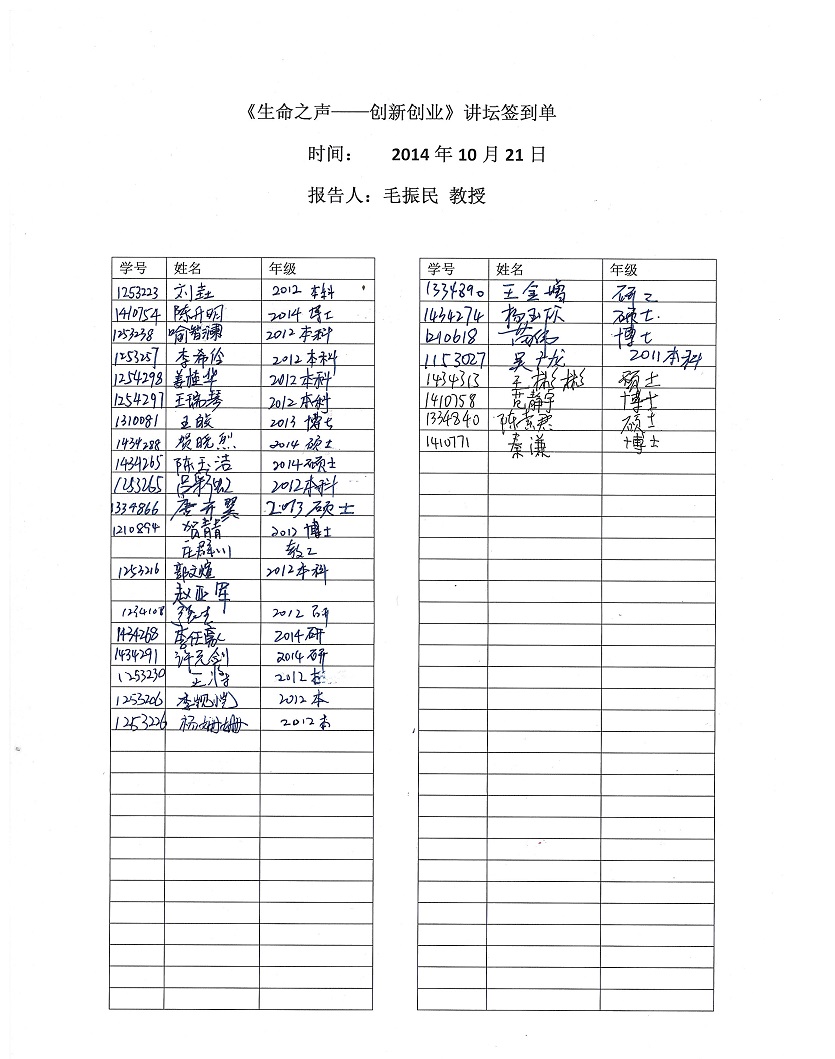 《生命之声——创新创业》讲坛签到单
时间： 2014 年 10 月 21 日
报告人：毛振民 教授
学号 姓名 年级
1253223 刘 2012 本科
1410754 陈升明 2014 博士
1253238 喻智澜 2012 本科
1253257 李希伶 2012 本科
1254298 姜桂华 2012 本科
1254297 王瑞琴 2012 本科
1310081 王皎 2013 博士
1434288 贺晓烈 2014 硕士
1434265 陈玉洁 2014 硕士
1253265 2012 本科
1334866 唐亦翼 2013 硕士
1210894 贺青青 2012 博士
庄群川 教工
1253216 郭文煊 2012 本科
赵亚军
1234108 2012 研
1434268 2014 研
1434291 许元剑 2014 研
1253230 2012
1253206 2012 本
1253226 杨姗姗 2012 本
学号 姓名 年级
1334890 王金 研二
1434274 硕士
1210618 博士
1153027 吴 2011 本科
1434313 王彬彬 硕士
1410758 范静宇 博士
1334840 硕士
1410771 秦谦 博士